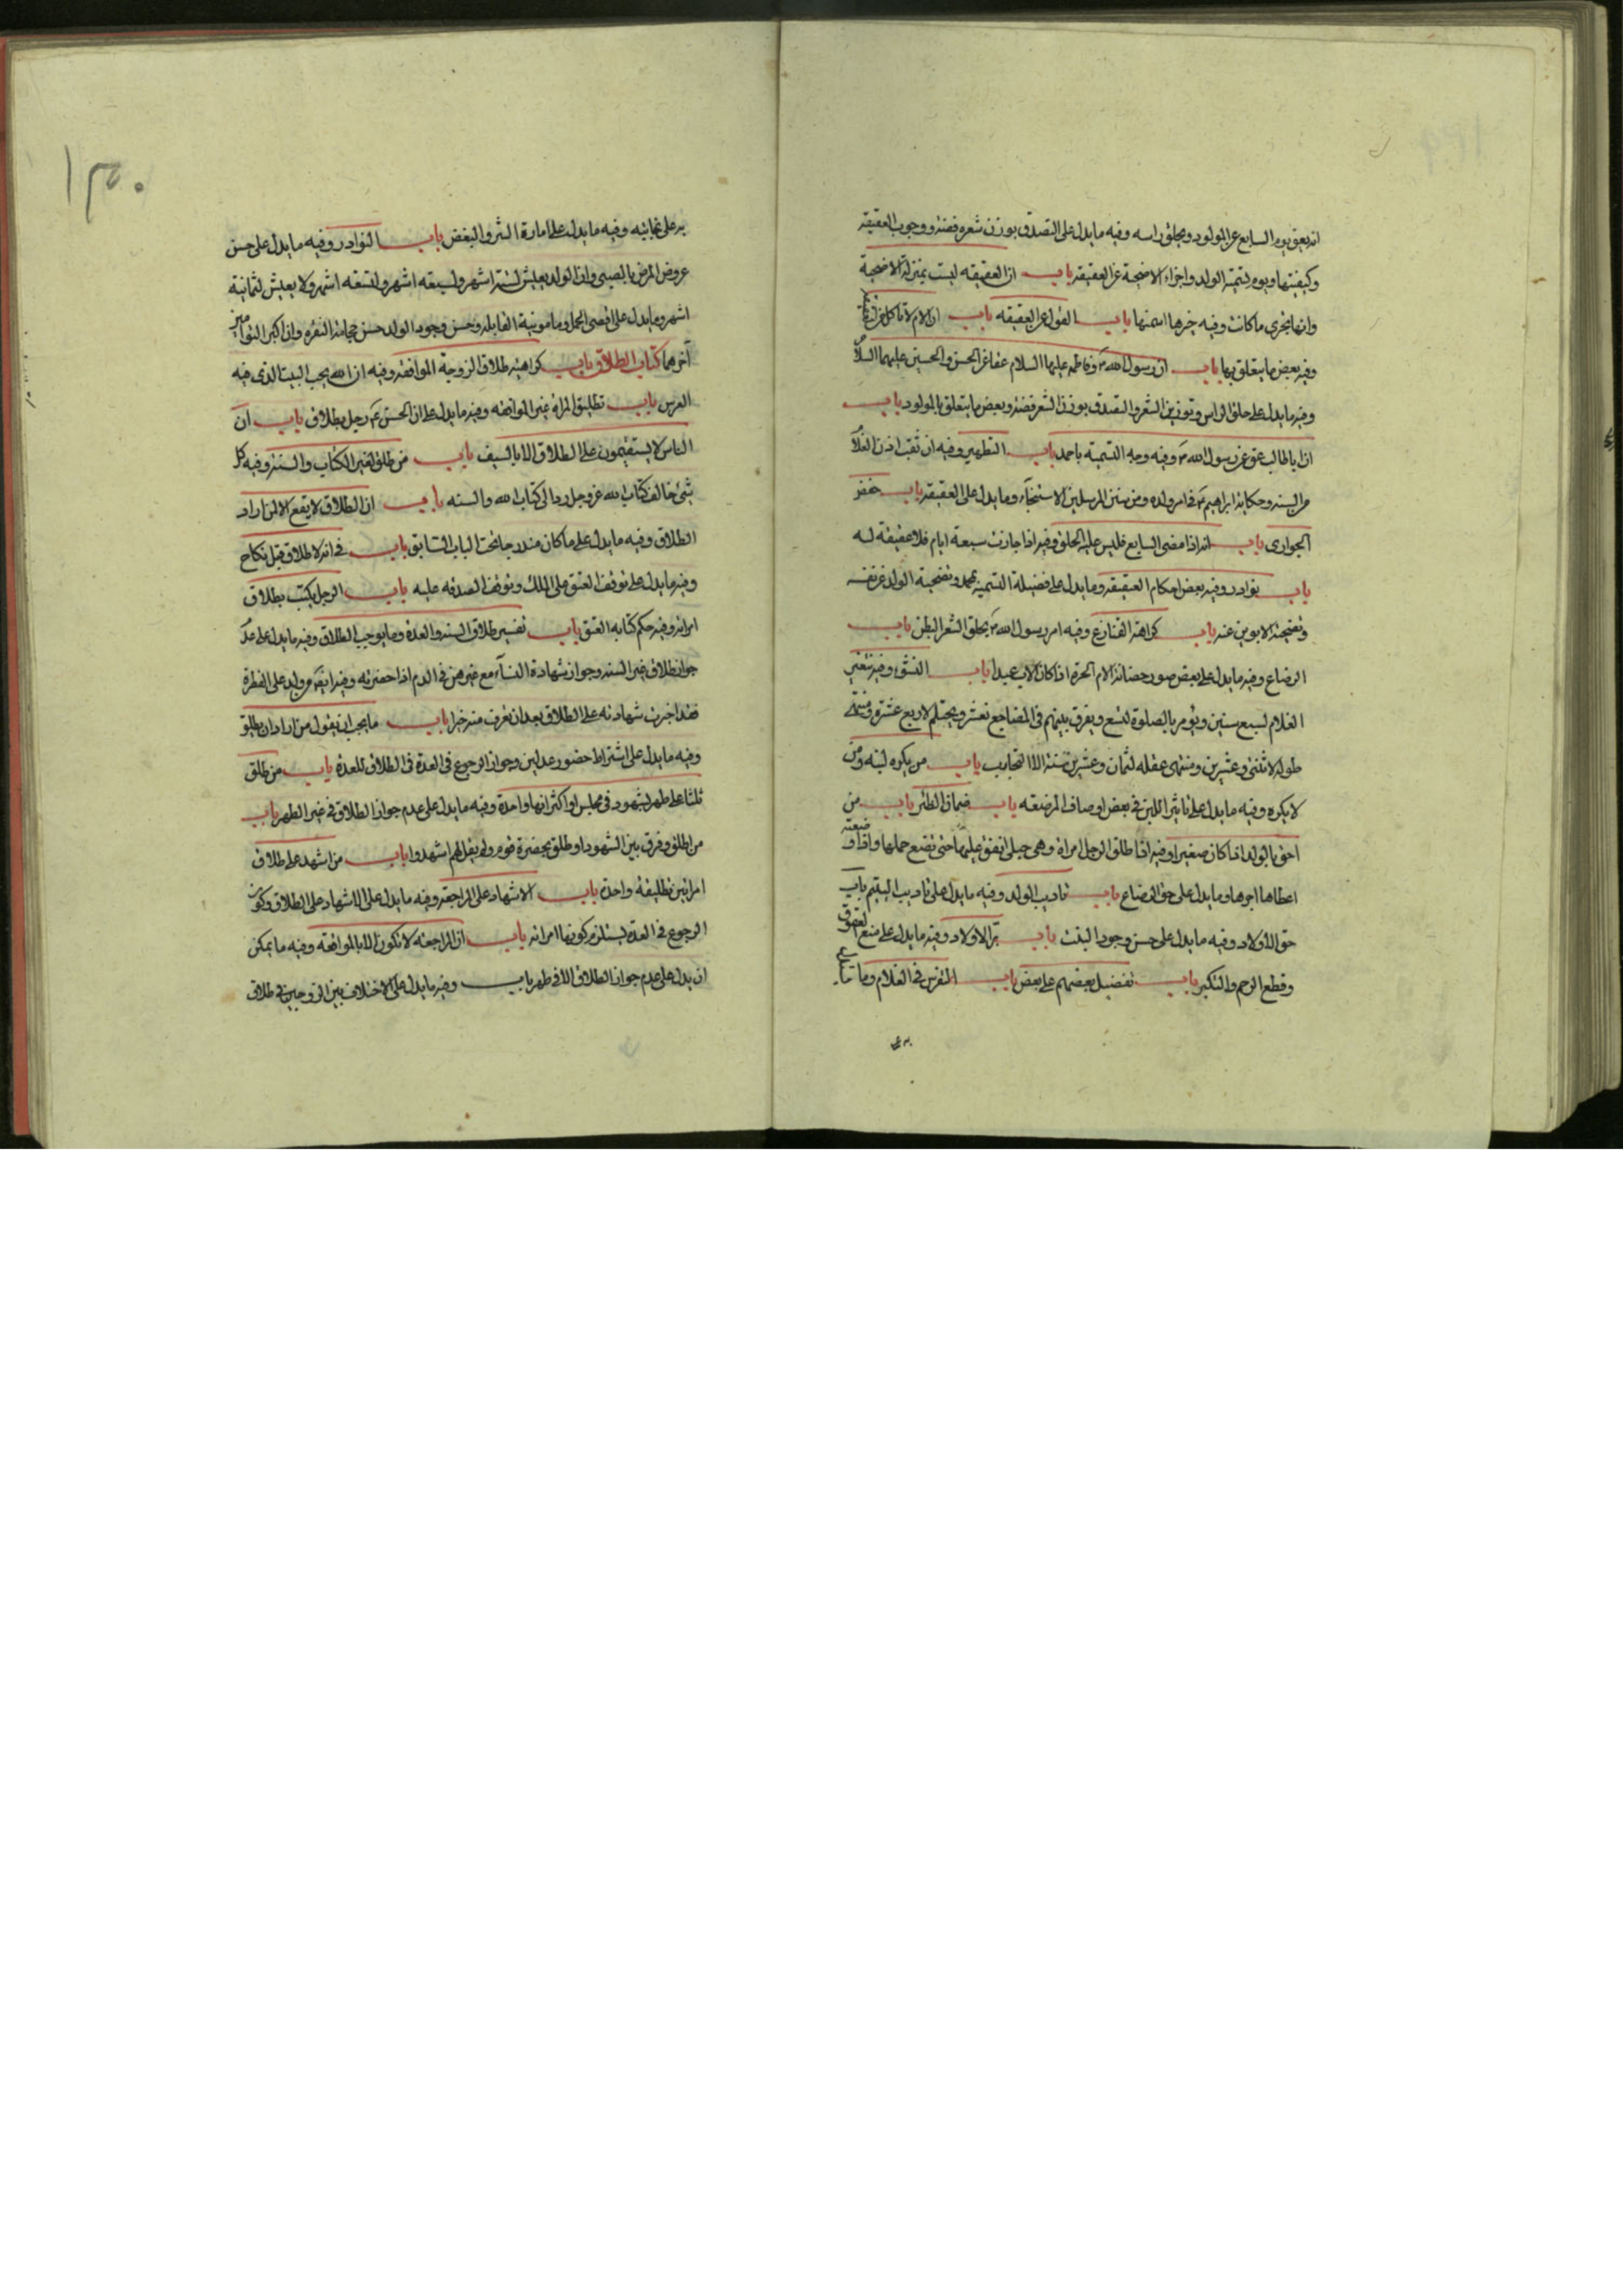 انه يعق يوم السابع عن المولود ويحلق راسه وفيه ما يدل على التصدق بوزن شعره فضة ووجوب العقيقه
وكيفيتها ويوم لتسمية الولد واجزاء الاضحية عن العقيقه باب ان العقيقه ليست بمنزلة الاضحية
وانها تجزى ما كانت وفيه خيرها اسمنها باب القول عن العقيقه باب ان الام لا تاكل من العقيقة
وفيه بعض ما يتعلق بها باب ان رسول الله ص وفاطمه عليهما السلام عقا عن الحسن والحسين عليهما السلام
وفيه ما يدل على حلق الراس وتوزين الشعر والتصدق بوزن الشعر فضة وبعض ما يتعلق بالمولود باب
ان ابا طالب عق عن رسول الله ص وفيه وجه التسمية باحمد باب التطهير وفيه ان ثقب اذن الغلام
من السنه وحكاية ابراهيم ع في امر ولده ومن سنن المرسلين الاستنجاء وما يدل على العقيقه باب خفض
الجوارى باب انه اذا مضى السابع فليس عليه الحلق وفيه اذا جازت سبعة ايام فلا عقيقة له
باب نوادر وفيه بعض احكام العقيقه وما يدل على فضيلة التسمية بمحمد وتضحية الولد عن نفسه
وتضحية الابوين عنه باب كراهة القنازع وفيه امر رسول الله ص بحلق الشعر البطن باب
الرضاع وفيه ما يدل على بعض صور حضانة الام الحرة اذا كان الاب عبدا باب النشو وفيه يثغر
الغلام لسبع سنين ويؤمر بالصلوة لتسع ويفرق بينهم في المضاجع لعشر ويحتلم لاربع عشرة ومنتهى
طوله لاثنتى وعشرين ومنتهى عقله لثمان وعشرين سنة الا التجارب باب من يكره لبنه ومن
لا يكره وفيه ما يدل على تاثير اللبن في بعض اوصاف المرضعه باب ضمان الظئر باب من
احق بالولد اذا كان صغيرا وفيه اذا طلق الرجل امراة وهى حبلى انفق عليها حتى تضع حملها واذا ارضعته
اعطاها اجرها وما يدل على حق الرضاع باب تاديب الولد وفيه ما يدل على تاديب اليتيم باب
حق الاولاد وفيه ما يدل على حسن وجود البنت باب بر الاولاد وفيه ما يدل على منع العقوق
وقطع الرحم والتكبر باب تفضيل بعضهم على بعض باب التفرس في الغلام وما
۱۵۰
به على نجابته وفيه ما يدل على امارة الشر والبغض باب النوادر وفيه ما يدل على حسن
عروض المرض بالصبى وان الولد يعيش لستة اشهر ولسبعه اشهر ولتسعه اشهر ولا يعيش لثمانية
اشهر وما يدل على اقصى الحمل ومامونية القابله وحسن وجود الولد حسن حجامة النقره وان اكبر التوامين
آخرهما كتاب الطلاق باب كراهية طلاق الزوجة الموافقه وفيه ان الله يحب البيت الذى فيه
العرس باب تطليق المراة غير الموافقه وفيه ما يدل على ان الحسن ع رجل مطلاق باب ان
الناس لا يستقيمون على الطلاق الا بالسيف باب من طلق لغير الكتاب والسنه وفيه كل
شئ خالف كتاب الله عز وجل رد الى كتاب الله والسنه باب ان الطلاق لا يقع الا لمن اراد
الطلاق وفيه ما يدل على ما كان مندرجا تحت الباب السابق باب في انه لا طلاق قبل نكاح
وفيه ما يدل على توقف العتق على الملك وتوقف الصدقه عليه باب الرجل يكتب بطلاق
امراته وفيه حكم كتابه العتق باب تفسير طلاق السنه والعدة وما يوجب الطلاق وفيه ما يدل على عدم
جواز طلاق غير السنه وجواز شهادة النساء مع غيرهن في الدم اذا حضرنه وفيه ايضا من ولد على الفطرة
فقد اجزت شهادته على الطلاق بعد ان تعرف منه خيرا باب ما يجب ان يقول من اراد ان يطلق
وفيه ما يدل على اشتراط حضور عدلين وجواز الرجوع في العدة في الطلاق للعدة باب من طلق
ثلثا على طهر بشهود في مجلس او اكثر انها واحدة وفيه ما يدل على عدم جواز الطلاق في غير الطهر باب
من طلق وفرق بين الشهود او طلق بحضرة قوم ولم يقل لهم اشهدوا باب من اشهد على طلاق
امراتين تطليقة واحدة باب الاشهاد على المراجعه وفيه ما يدل على الاشهاد على الطلاق وكون
الرجوع في العدة يستلزم كونها امراته باب ان المراجعة لا تكون الا بالمواقعه وفيه ما يمكن
ان يدل على عدم جواز الطلاق الا في طهر باب وفيه ما يدل على الاختلاف بين الزوجين في طلاق